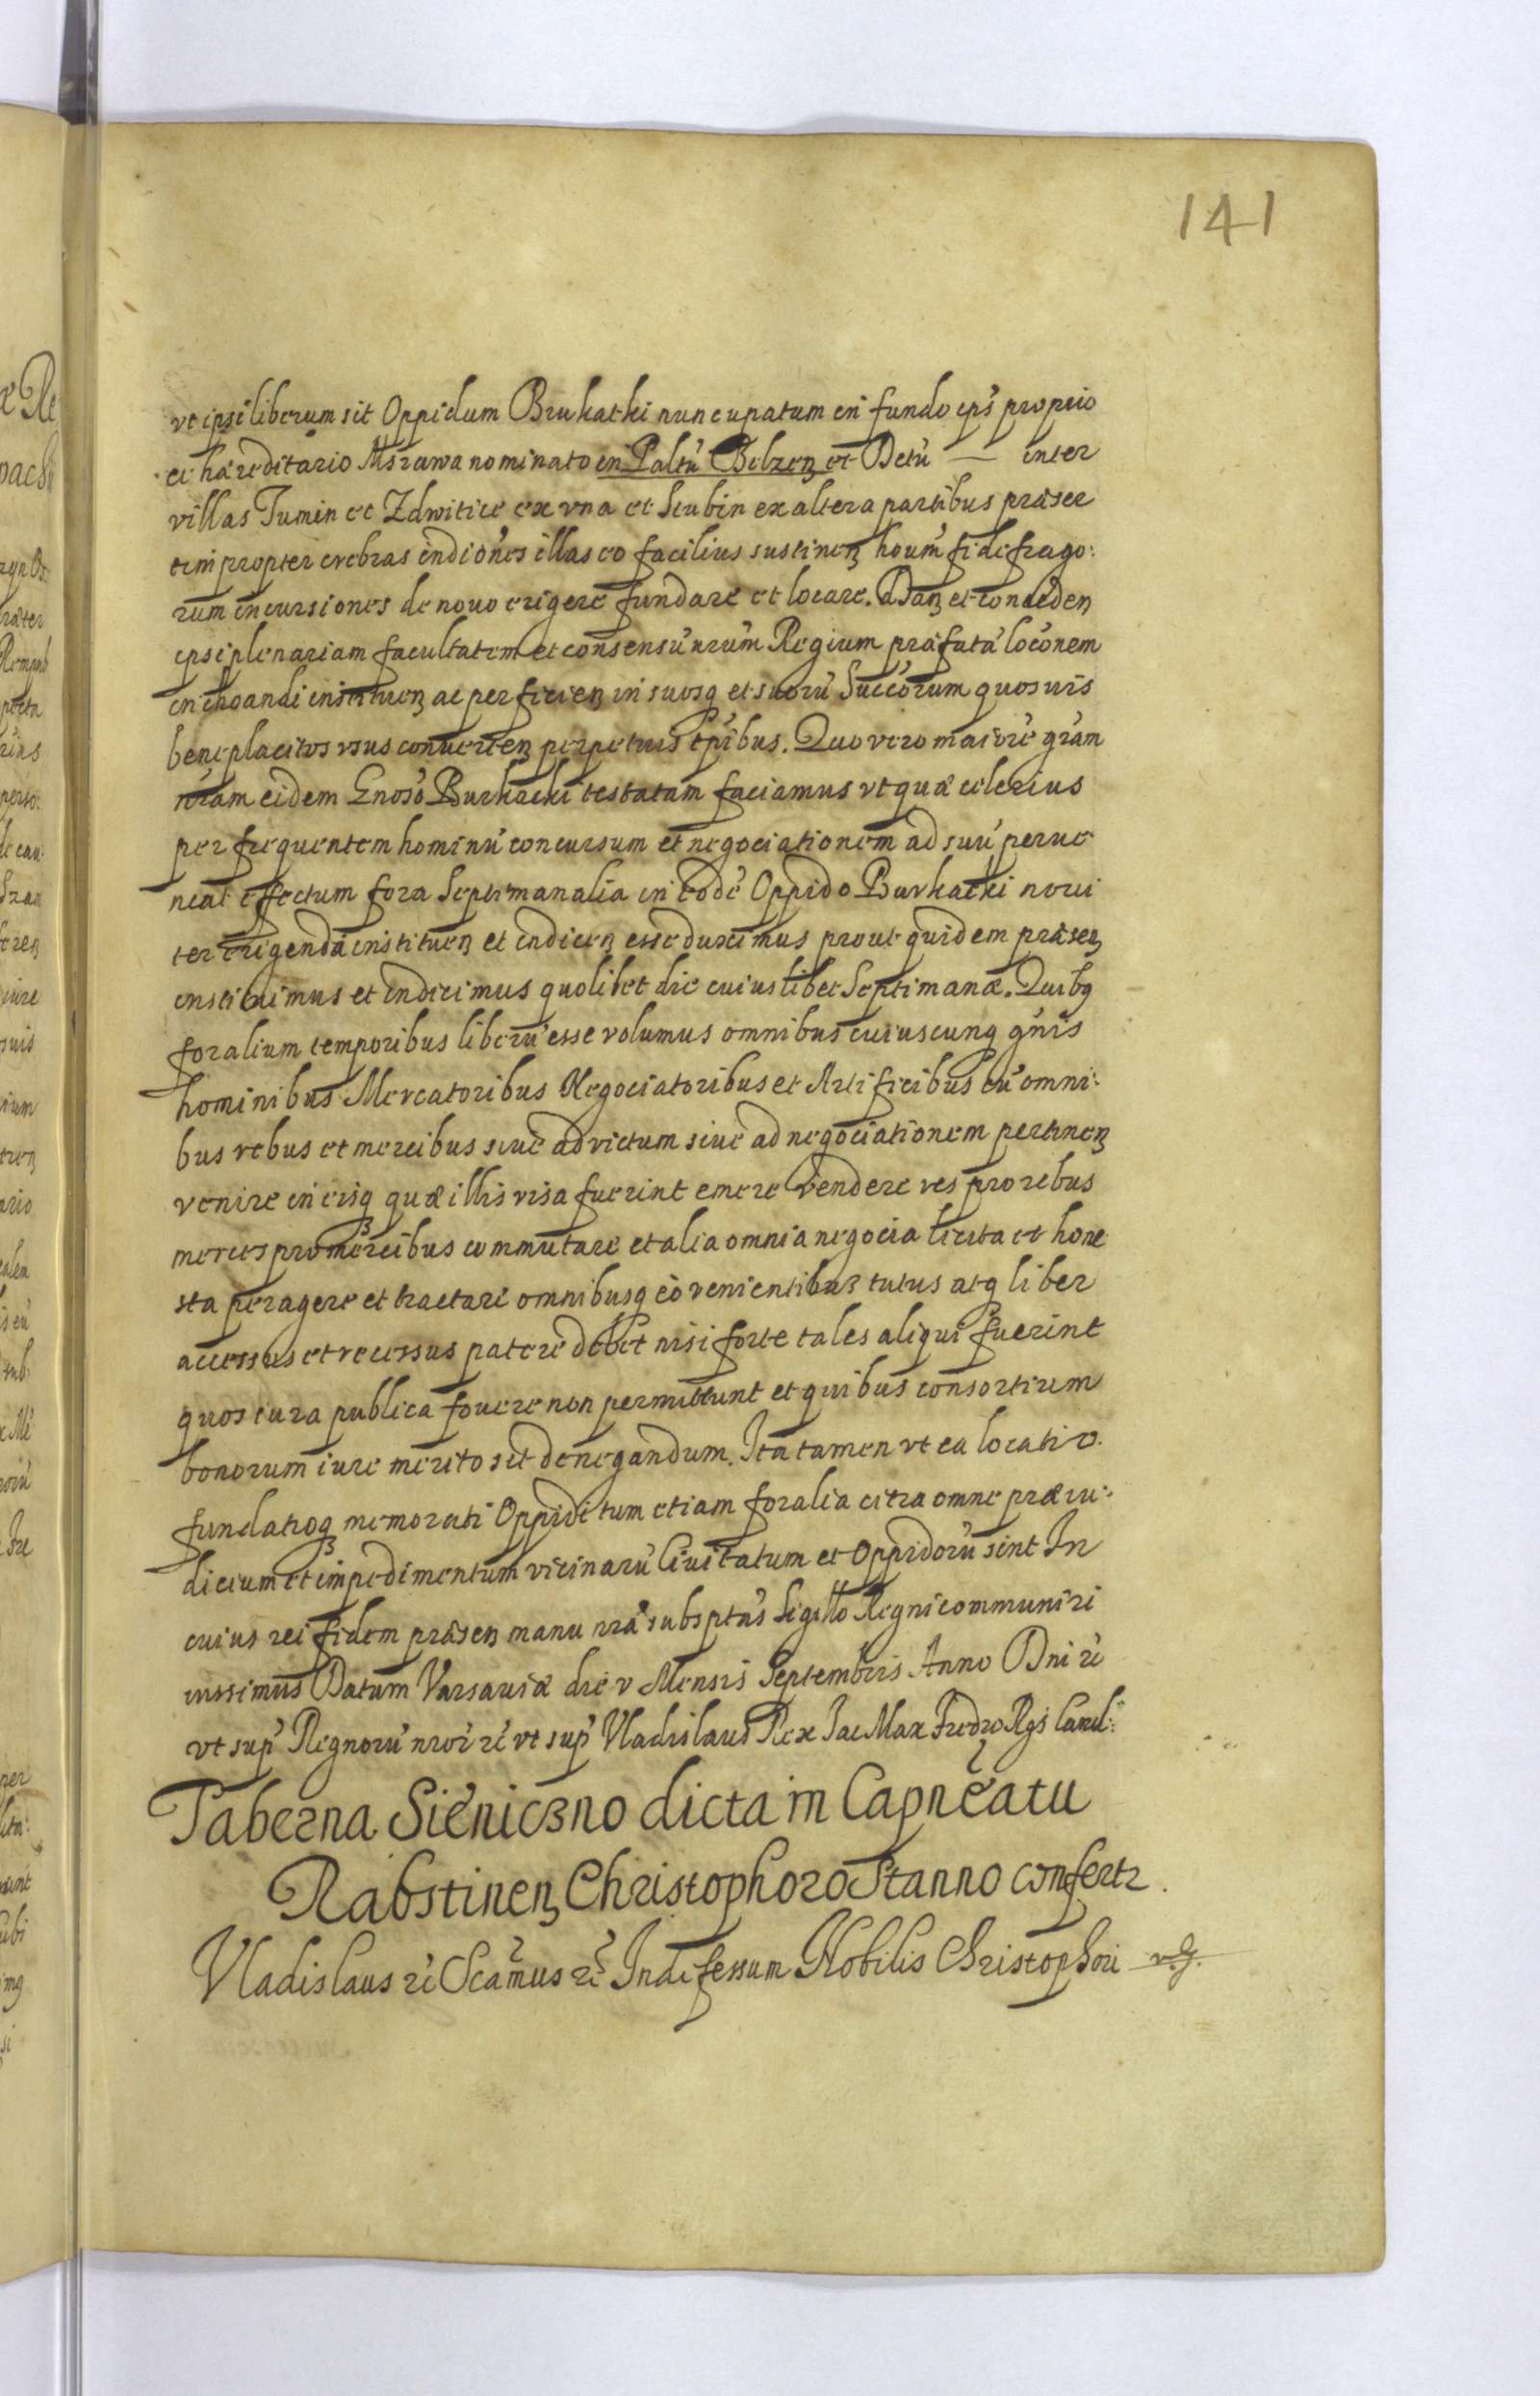 141
vt ipsi liberum sit Oppidum Bruhatki nuncupatum in fundo ips' proprio
et hæreditario Msrawa nominato in Paltu' Belzen et Dctu' — inter
villas Tumin et Zdwitice ex vna et Scubin ex altera partibus præser
tim propter crebras indiones illas eo facilius sustinen hoium fidefrago:
rum incursiones de nouo erigere fundare et locare. Dan et conceden
ipsi plenariam facultatem et consensu' nrum Regium præfata' loc'onem
inchoandi instituen ac perficien in suosq et suoru' Succorum quosuis
beneplacitos vsus conuerten perpetuis tpibus. Quo vero maiore' gra'm
nram eidem Gnoso' Burhacki testatam faciamus vt quæ celerius
per frequentem hominu' concursum et negociationem ad suu' perue
niat effectum fora Septimanalia in eode' Oppido Burhatki noui
ter erigenda instituen et indicen esse duximus prout quidem præsen
instituimus et indicimus quolibet die cuiuslibet Septimanæ. Quibq
foralium temporibus liberu' esse volumus omnibus cuiuscunq gn'is
hominibus Mercatoribus Negociatoribus et Artificibus cu' omni:
bus rebus et mercibus siue ad victum siue ad negociationem pertinen
venire in eisq quæ illis visa fuerint emere vendere res pro rebus
merces pro mercibus commutare et alia omnia negocia licita et hone
sta peragere et tractare omnibusq eo venientibus tutus atq liber
accessus et recessus patere debet nisi forte tales aliqui fuerint
quos iura publica fouere non permittunt et quibus consortium
bonorum iure merito sit denegandum. Ita tamen vt ea locatio.
fundatioq memorati Oppidi tum etiam foralia citra omne præiu:
dicium et impedimentum vicinaru' Ciuitatum et Oppidoru' sint In
cuius rei fidem præsen manu nra subsptas Sigillo Regni communiri
iussimus Datum Varsauiæ die v Mensis Septembris Anno Dni rc
vt sup' Regnoru' nror' rc vt sup' Vladislaus Rex Jac Max Fredro Rgs Cancl:
Taberna Sieniczno dicta in Capneatu
Rabstinen Christophoro Stanno confertr.
Vladislaus rc Sca'mus rc Indefessum Nobilis Christophori